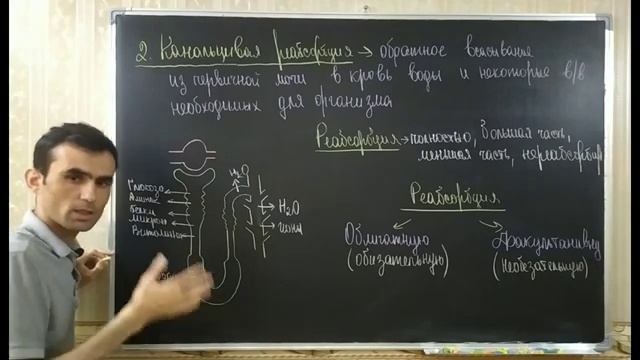 2. Канальцевая реабсорбция → обратное всасывание
из первичной мочи в кровь воды и некоторые в/в
необходимых для организма
Реабсорбция → полностью, большая часть,
меньшая часть, нереабсорбир
Реабсорбция
Облигатную
(обязательную)
Факультативную
(необезательную)
Глюкоза
Белки
микроэ
Витамины
H₂O
H₂O
ионы